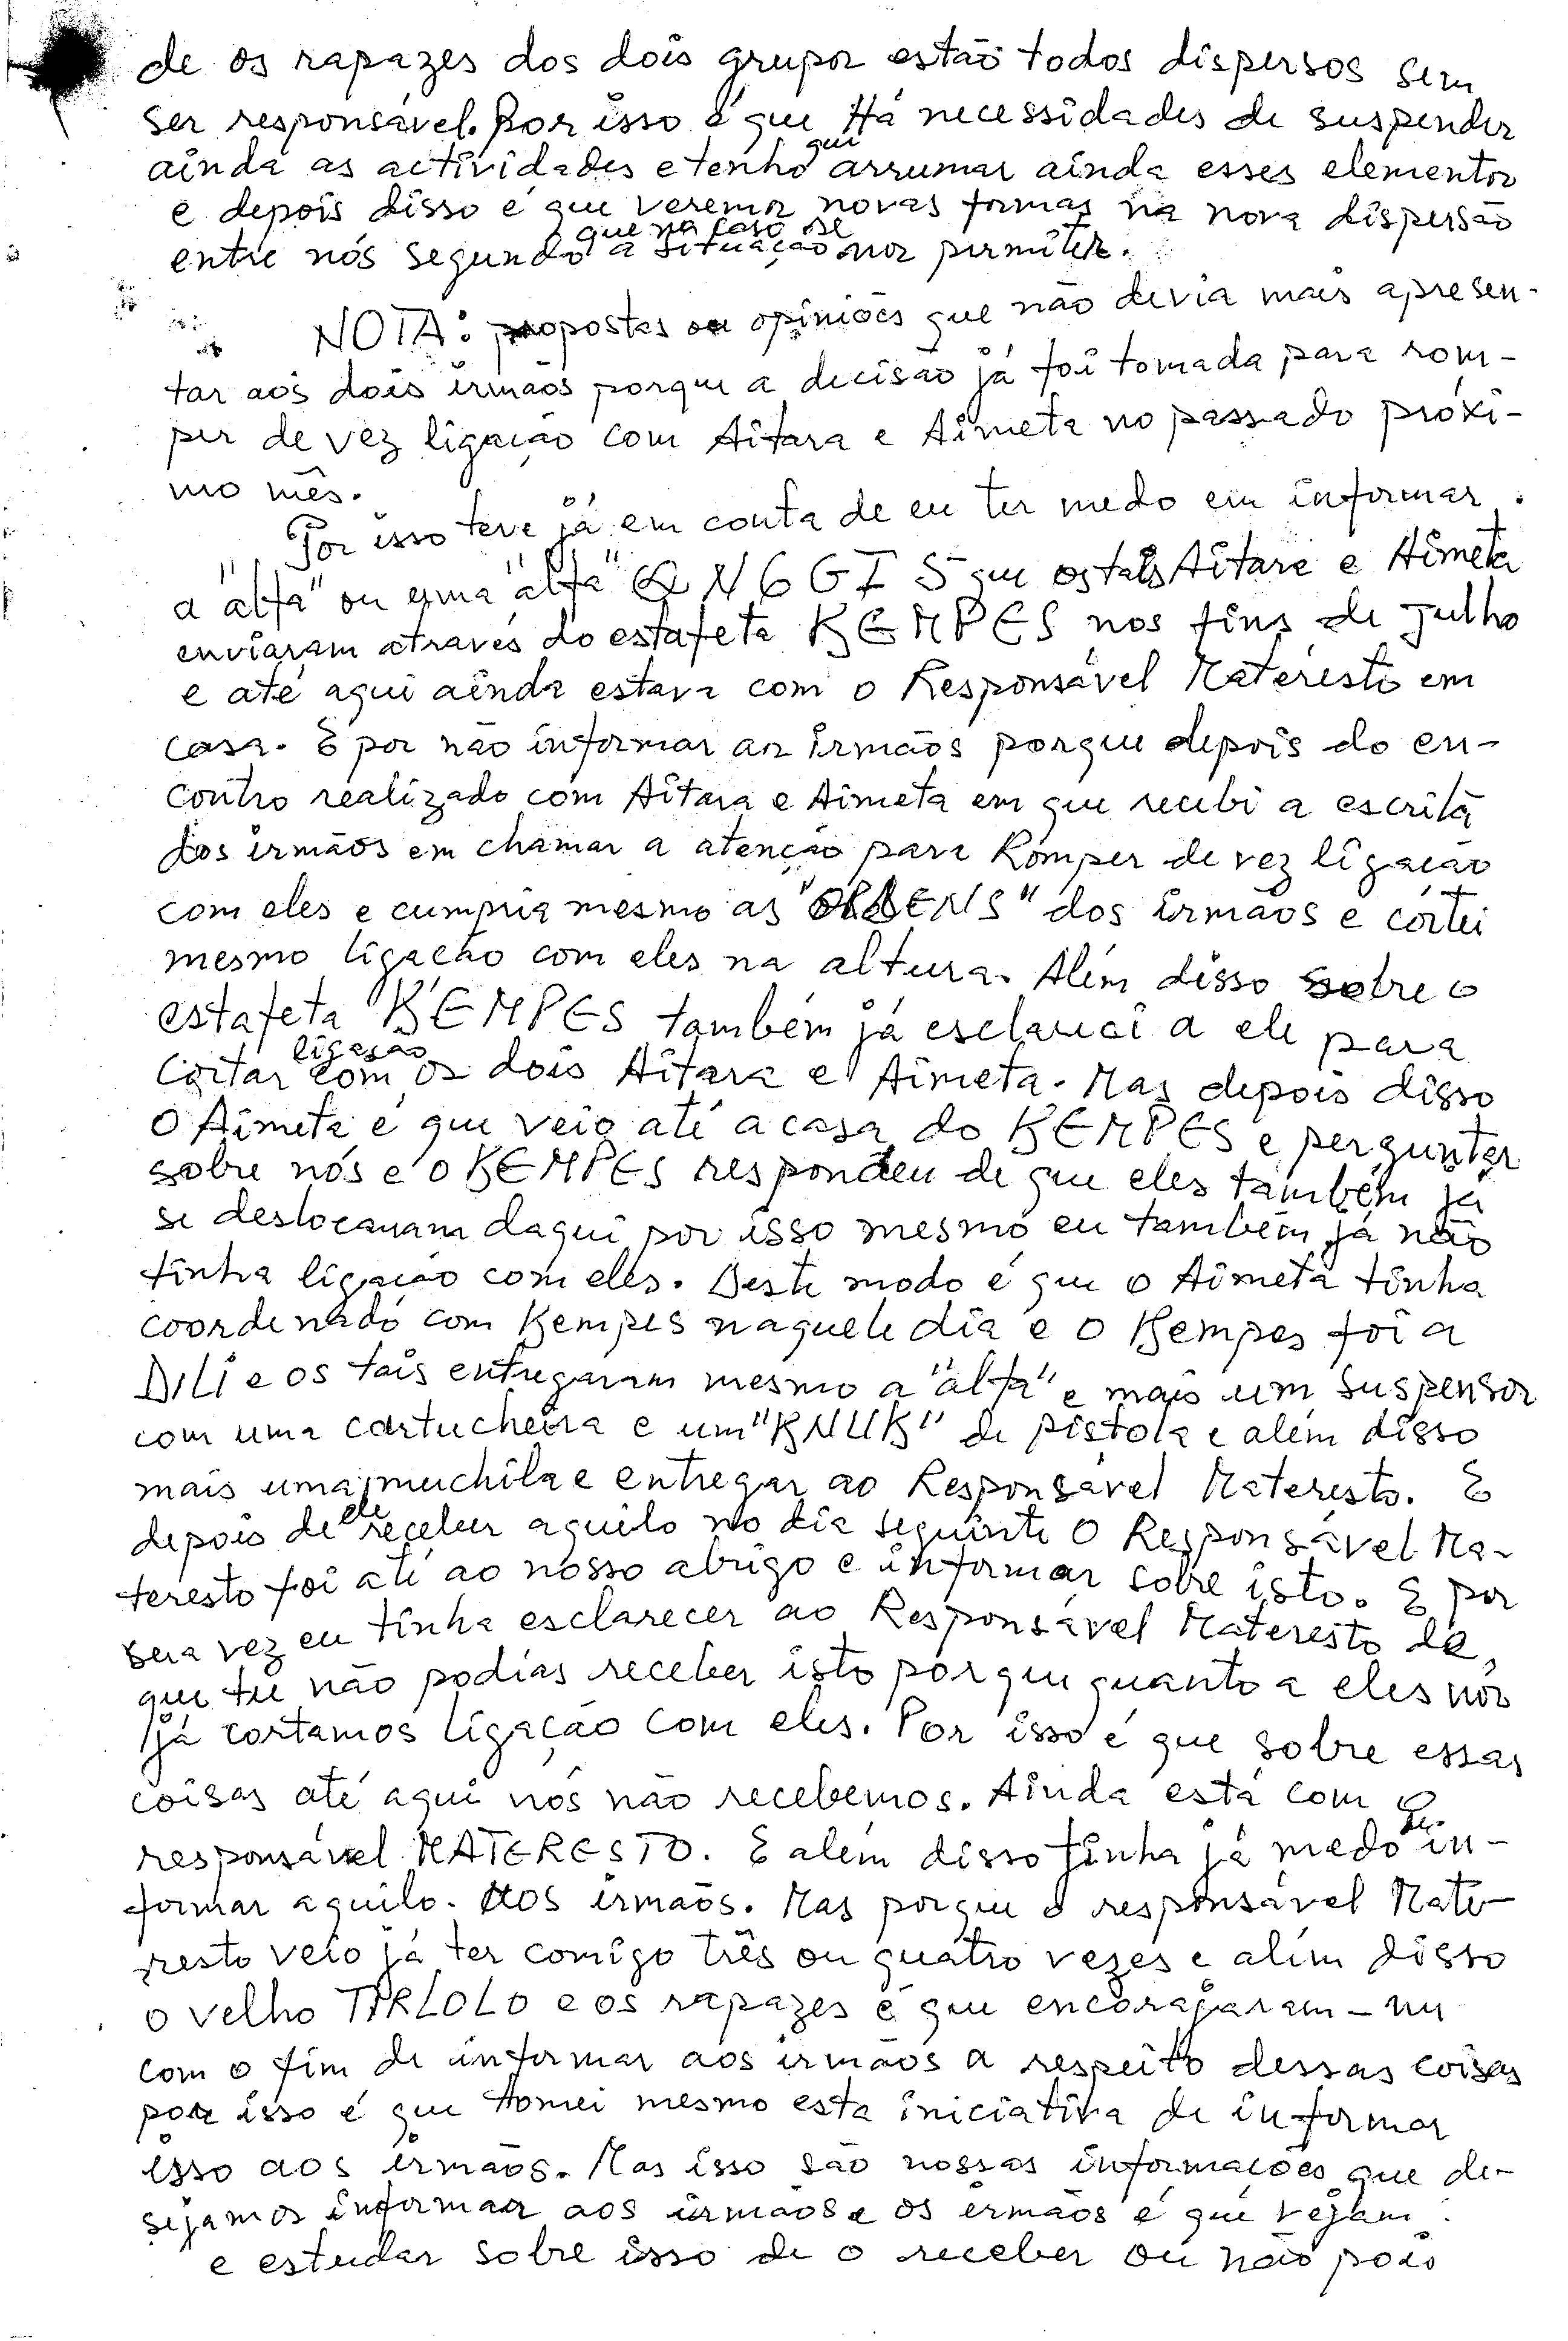 de os rapazes dos dois grupos estão todos dispersos sem
ser responsável. Por isso é que Há necessidades de suspender
ainda as actividades e tenho que arrumar ainda esses elementos
e depois disso é que veremos novas formas na nova dispersão
que na caso se
entre nós segundo a situação nos permiter.
NOTA: propostas ou opiniões que não devia mais apresen-
tar aos dois irmãos porque a decisão já foi tomada para rom-
per de vez ligação com Aitara e Aimeta no passado próxi-
mo mês.
Por isso teve já em conta de eu ter medo em informar
a "alfa" ou uma "alfa" que os tais Aitara e Aimeta
enviaram através do estafeta KEMPES nos fins de julho
e até aqui ainda estava com o Responsável Materesto em
casa. E por não informar aos irmãos porque depois do en-
contro realizado com Aitara e Aimeta em que recebi a escrita
dos irmãos em chamar a atenção para Romper de vez ligação
com eles e cumpria mesmo as "ORDENS" dos irmãos e cortei
mesmo ligação com eles na altura. Além disso sobre o
estafeta KEMPES também já esclareci a ele para
cortar ligação com os dois Aitara e Aimeta. Mas depois disso
o Aimeta é que veio até a casa do KEMPES e perguntar
sobre nós e o KEMPES respondeu de que eles também já
se deslocaram daqui por isso mesmo eu também já não
tinha ligação com eles. Deste modo é que o Aimeta tinha
coordenado com Kempes naquele dia e o Kempes foi a
DILI e os tais entregaram mesmo a "alfa" e mais um suspensor
com uma cartucheira e um "KNUK" de pistola e além disso
mais uma muchila e entregar ao Responsável Materesto. E
depois de ele receber aquilo no dia seguinte o Responsável Ma-
teresto foi até ao nosso abrigo e informar sobre isto. E por
sua vez eu tinha esclarecer ao Responsável Materesto de
que tu não podias receber isto porque quanto a eles nós
já cortamos ligação com eles. Por isso é que sobre essas
coisas até aqui nós não recebemos. Ainda está com o
responsável MATERESTO. E além disso tinha já medo de in-
formar aquilo. Aos irmãos. Mas porque o responsável Mate-
resto veio já ter comigo três ou quatro vezes e além disso
o velho TIRLOLO e os rapazes é que encorajaram-me
com o fim de informar aos irmãos a respeito dessas coisas
por isso é que tomei mesmo esta iniciativa de informar
isso aos irmãos. Mas isso são nossas informações que de-
sejamos informar aos irmãos e os irmãos é que vejam
e estudar sobre isso de o receber ou não pois